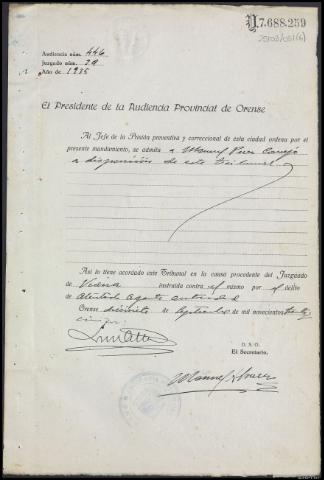 Y.7.688.259
25103/051(6)
Audiencia núm. 446
Juzgado núm. 29
Año de 1935
El Presidente de la Audiencia Provincial de Orense
Al Jefe de la Prisión preventiva y correccional de esta ciudad ordena por el
presente mandamiento, se admita a Manuel Pérez
a disposición de este Tribunal
Así lo tiene acordado este Tribunal en la causa procedente del Juzgado
de Viana instruida contra el mismo por el delito
de Atentado agente autoridad
Orense diecisiete de Septiembre de mil novecientos treinta y
cinco
D. S. O.
El Secretario,